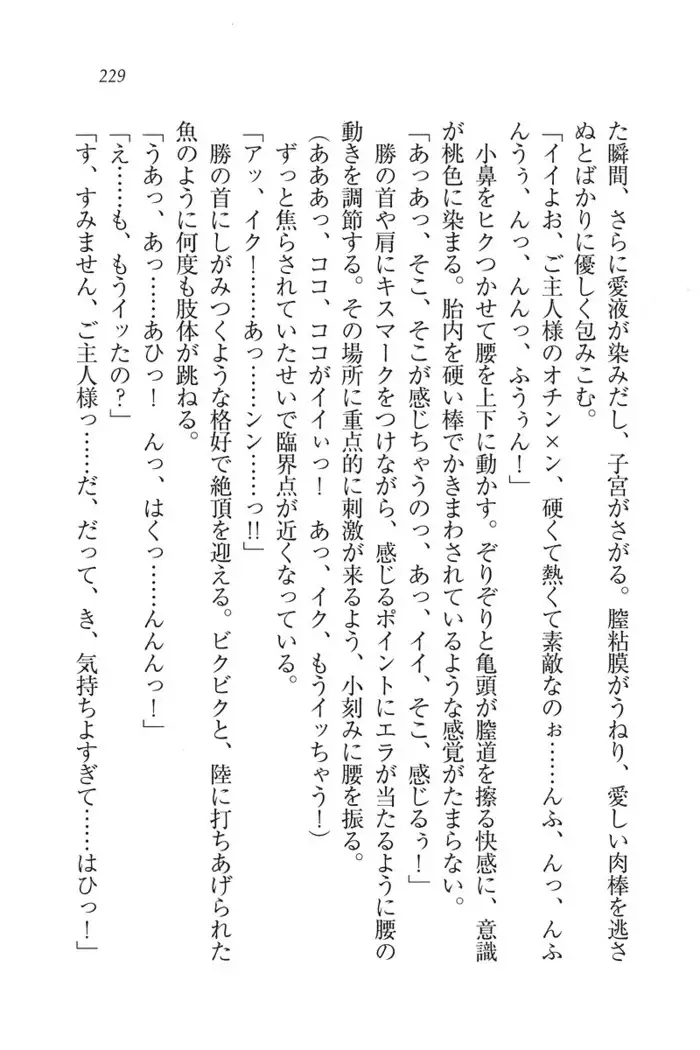 229
た瞬間、さらに愛液が染みだし、子宮がさがる。膣粘膜がうねり、愛しい肉棒を逃さ
ぬとばかりに優しく包みこむ。
「イイよお、ご主人様のオチン×ン、硬くて熱くて素敵なのぉ……んふ、んっ、んふ
んうぅ、んっ、んんっ、ふうぅん！」
小鼻をヒクつかせて腰を上下に動かす。ぞりぞりと亀頭が膣道を擦る快感に、意識
が桃色に染まる。胎内を硬い棒でかきまわされているような感覚がたまらない。
「あっあっ、そこ、そこが感じちゃうのっ、あっ、イイ、そこ、感じるぅ！」
勝の首や肩にキスマークをつけながら、感じるポイントにエラが当たるように腰の
動きを調節する。その場所に重点的に刺激が来るよう、小刻みに腰を振る。
（あああっ、ココ、ココがイイぃっ！　あっ、イク、もうイッちゃう！）
ずっと焦らされていたせいで臨界点が近くなっている。
「アッ、イク！……あっ……ンン……っ!!」
勝の首にしがみつくような格好で絶頂を迎える。ビクビクと、陸に打ちあげられた
魚のように何度も肢体が跳ねる。
「うあっ、あっ……あひっ！　んっ、はくっ……んんんっ！」
「え……も、もうイッたの？」
「す、すみません、ご主人様っ……だ、だって、き、気持ちよすぎて……はひっ！」